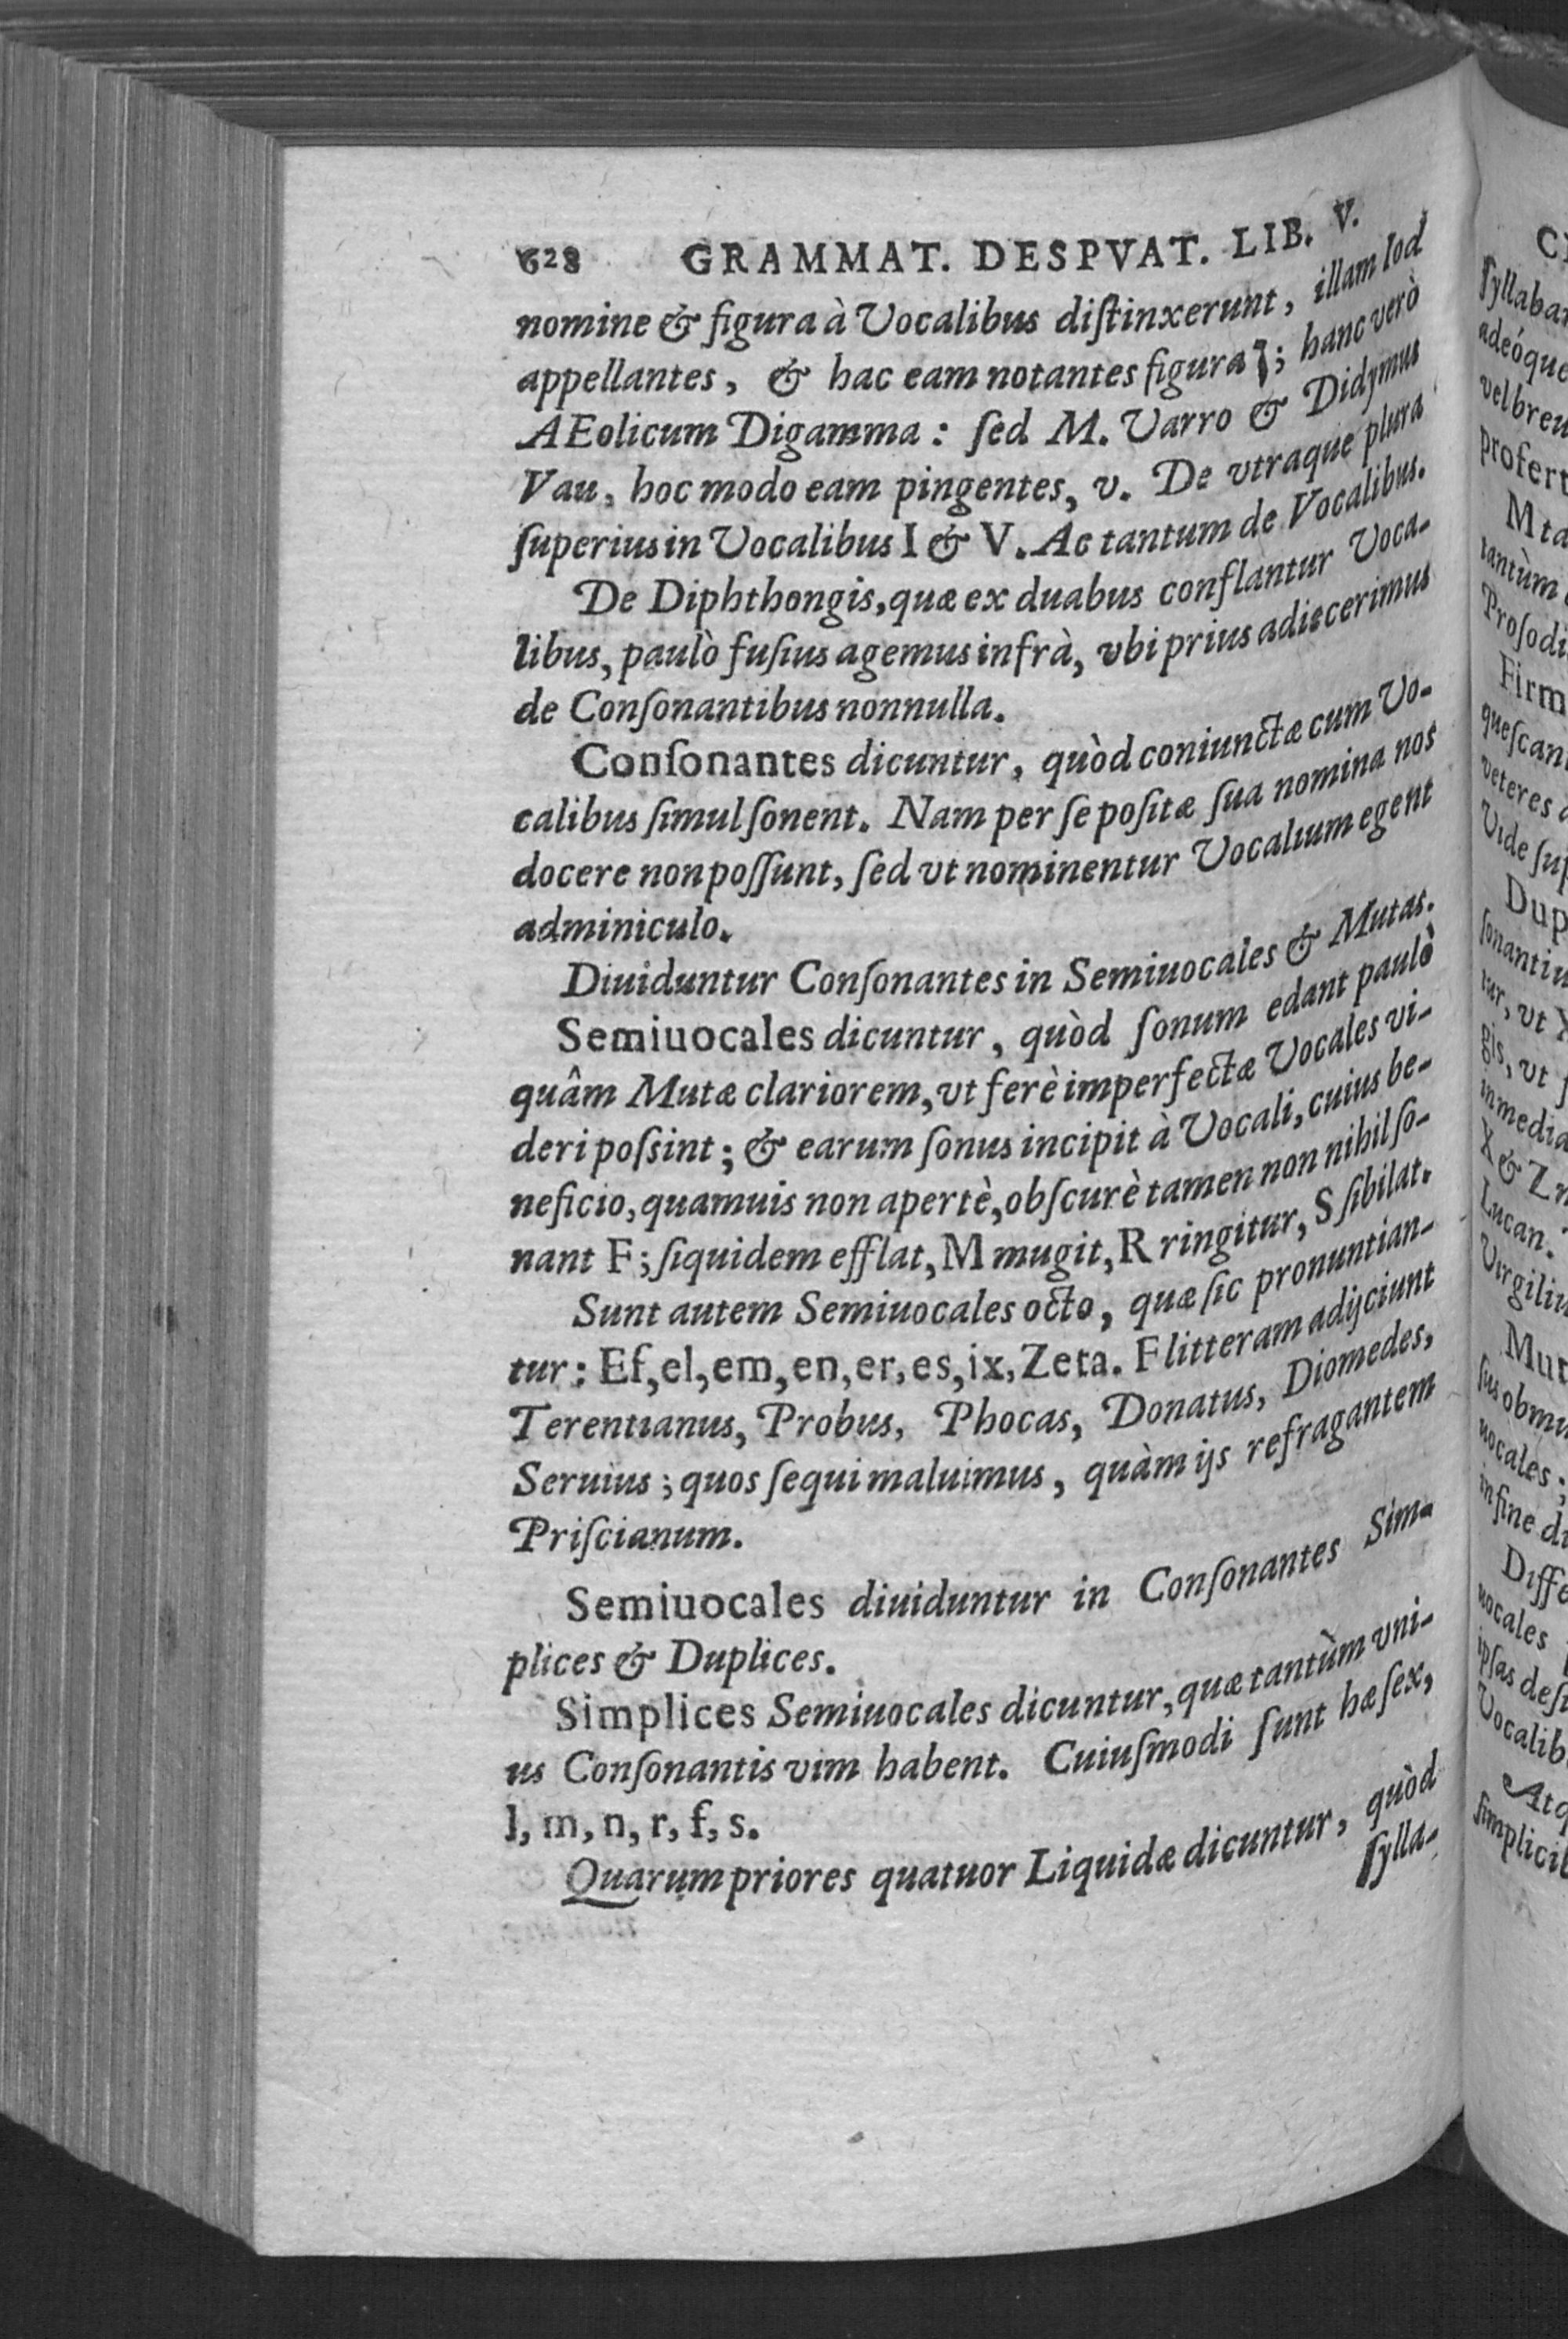 628 GRAMMAT. DESPVAT. LIB. V.
nomine & figura à Vocalibus diſtinxerunt, illam Iod
appellantes, & hac eam notantes figura ; hanc verò
AEolicum Digamma: ſed M. Varro & Didymus
Vau, hoc modo eam pingentes, v. De vtraque plura
ſuperius in Vocalibus I & V. Ac tantum de Vocalibus.
De Diphthongis, quæ ex duabus conflantur Voca-
libus, paulò fuſius agemus infrà, vbi prius adiecerimus
de Conſonantibus nonnulla.
Conſonantes dicuntur, quòd coniunctæ cum Vo-
calibus ſimul ſonent. Nam per ſe poſitæ ſua nomina nos
docere non poſſunt, ſed vt nominentur Vocalium egent
adminiculo.
Diuiduntur Conſonantes in Semiuocales & Mutas.
Semiuocales dicuntur, quòd ſonum edant paulò
quâm Mutæ clariorem, vt ferè imperfectæ Vocales vi-
deri poſsint; & earum ſonus incipit à Vocali, cuius be-
neficio, quamuis non apertè, obſcurè tamen non nihil ſo-
nant F; ſiquidem efflat, M mugit, R ringitur, S ſibilat.
Sunt autem Semiuocales octo, quæ ſic pronuntian-
tur: Ef, el, em, en, er, es, ix, Zeta. F litteram adijciunt
Terentianus, Probus, Phocas, Donatus, Diomedes,
Seruius; quos ſequi maluimus, quàm ijs refragantem
Priſcianum.
Semiuocales diuiduntur in Conſonantes Sim-
plices & Duplices.
Simplices Semiuocales dicuntur, quæ tantùm vni-
us Conſonantis vim habent. Cuiuſmodi ſunt hæ ſex,
l, m, n, r, f, s.
Quarum priores quatuor Liquidæ dicuntur, quòd
ſylla-